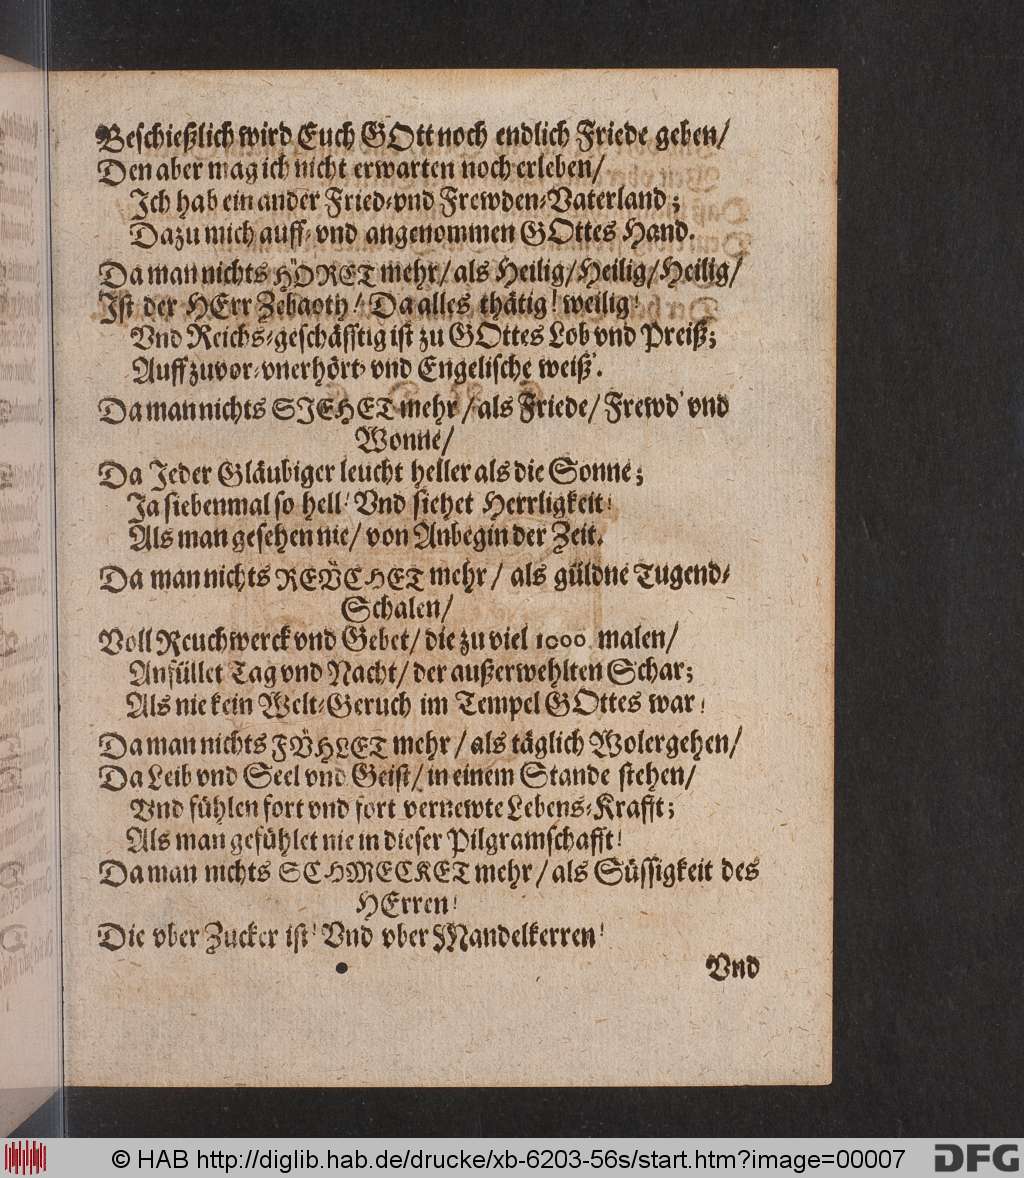 Beschießlich wird Euch GOtt noch endlich Friede geben/
Den aber mag ich nicht erwarten noch erleben/
Ich hab ein ander Fried-vnd Frewden-Vaterland;
Dazu mich auff-vnd angenommen GOttes Hand.
Da man nichts HÖRET mehr/ als Heilig/ Heilig/ Heilig/
Ist der HErr Zebaoth! Da alles thätig! weilig!
Vnd Reichs-geschäfftig ist zu GOttes Lob vnd Preiß;
Auff zuvor-vnerhört-vnd Engelische weiß'.
Da man nichts SIEHET mehr/ als Friede/ Frewd' vnd
Wonne/
Da Jeder Gläubiger leucht heller als die Sonne;
Ja siebenmal so hell! Vnd siehet Herrligkeit!
Als man gesehen nie/ von Anbegin der Zeit.
Da man nichts REÜCHET mehr/ als güldne Tugend-
Schalen/
Voll Reuchwerck vnd Gebet/ die zu viel 1000. malen/
Anfüllet Tag vnd Nacht/ der außerwehlten Schar;
Als nie kein Welt-Geruch im Tempel GOttes war!
Da man nichts FÜHLET mehr/ als täglich Wolergehen/
Da Leib vnd Seel vnd Geist/ in einem Stande stehen/
Vnd fühlen fort vnd fort vernewte Lebens-Krafft;
Als man gefühlet nie in dieser Pilgramschafft!
Da man nichts SCHMECKET mehr/ als Süssigkeit des
HErren!
Die vber Zucker ist! Vnd vber Mandelkerren!
Vnd
© HAB http://diglib.hab.de/drucke/xb-6203-56s/start.htm?image=00007
DFG